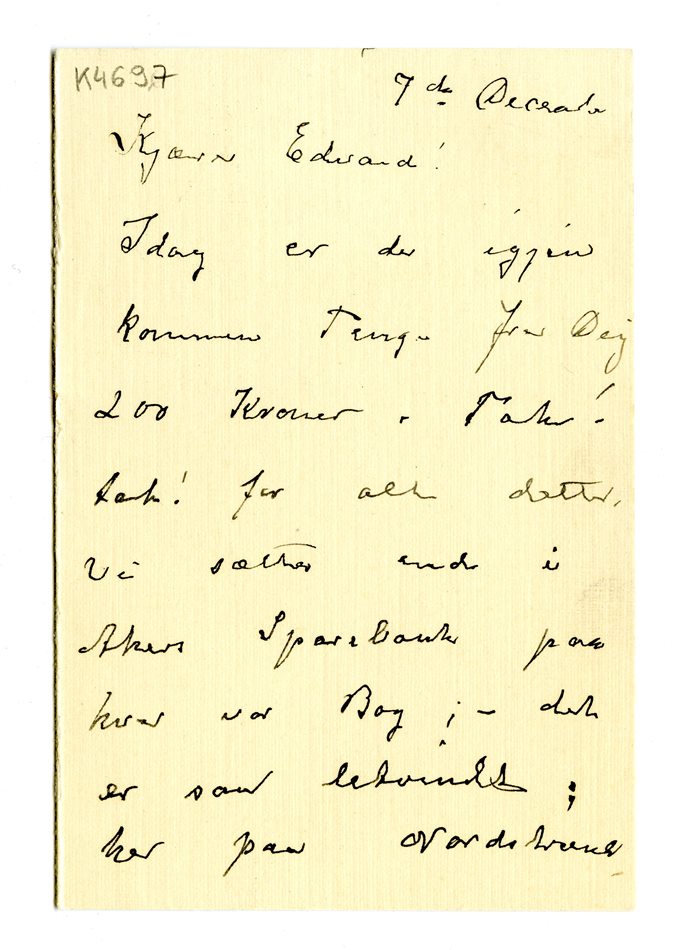 K4697
7de Decembr
Kjære Edvard!
Idag er der igjen
kommen Penge fra Dig
200 Kroner. Tak!
tak! for alt dette.
Vi sætter ind i
Akers Sparebank paa
hver vor Bog; - det
er saa letvindt;
her paa Nordstrand